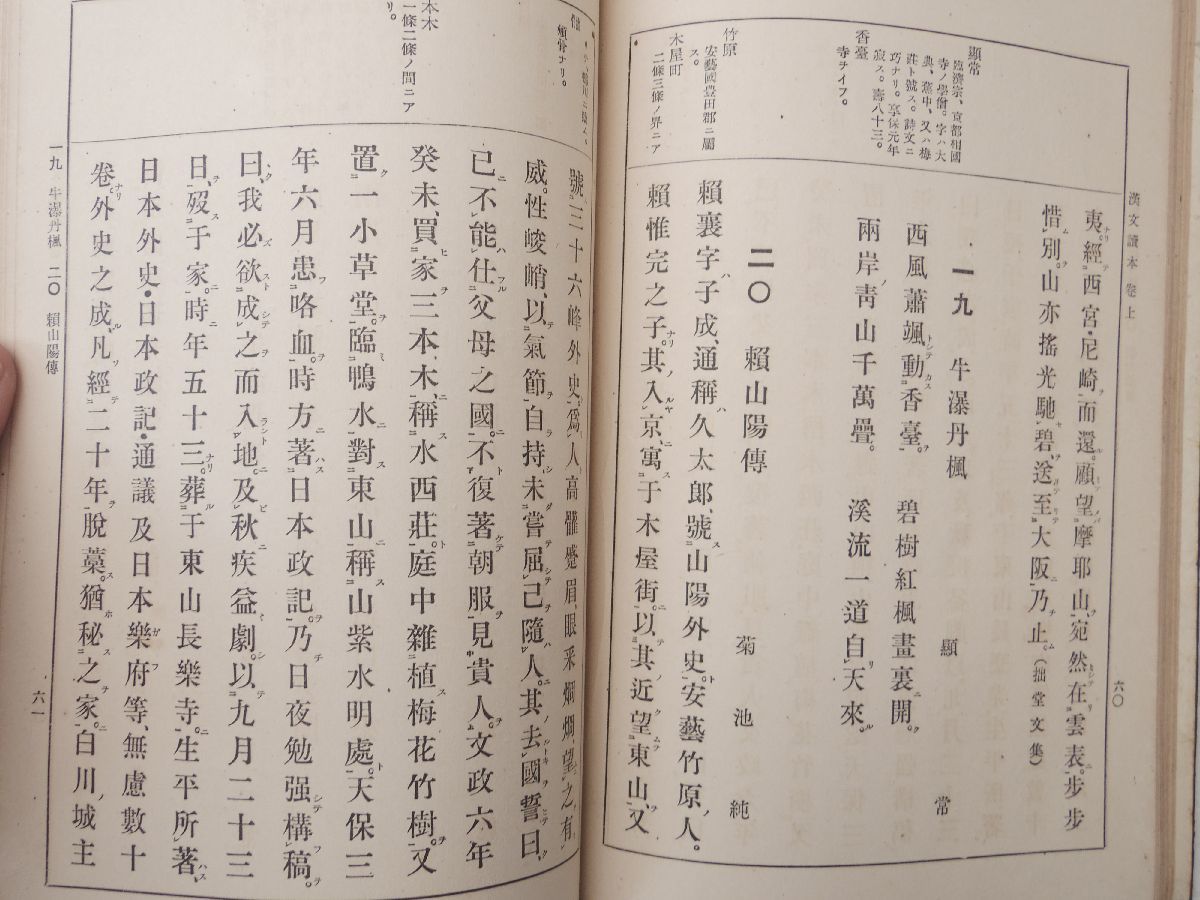 漢文讀本 卷上
六〇
夷。經西宮・尼崎而還。顧望摩耶山、宛然在雲表。步步
惜別。山亦搖光馳碧、送至大阪乃止。(拙堂文集)
一九 牛瀑丹楓
顯常
西風蕭颯動香臺。 碧樹紅楓畫裏開。
兩岸靑山千萬疊。 溪流一道自天來。
二〇 賴山陽傳
菊池純
賴襄字子成、通稱久太郎、號山陽外史。安藝竹原人。
賴惟完之子。其入京、寓于木屋街。以其近望東山、又
顯常
臨濟宗、京都相國
寺ノ學僧。字ハ大
典、蕉中、又ハ梅
莊ト號ス。詩文ニ
巧ナリ。享保元年
寂ス。壽八十三。
香臺
寺チイフ。
竹原
安藝國豊田郡ニ屬
ス。
木屋町
二條三條ノ界ニア
號三十六峰外史。爲人高髓蹙眉、眼采烱烱望之有
威。性峻峭、以氣節自持、未嘗屈己隨人。其去國誓曰、
已不能仕父母之國。不復著朝服見貴人。文政六年
癸未、買家三本木、稱水西莊。庭中雜植梅花竹樹。又
置一小草堂。臨鴨水對東山、稱山紫水明處。天保三
年六月患咯血。時方著日本政記。乃日夜勉强構稿。
曰、我必欲成之而入地。及秋疾益劇。以九月二十三
日、歿于家。時年五十三。葬于東山長樂寺。生平所著、
日本外史・日本政記・通議及日本樂府等、無慮數十
卷。外史之成、凡經二十年脫藁。猶秘之家。白川城主
頰骨ナリ。
本木
一條二條ノ間ニア
リ。
一九 牛瀑丹楓 二〇 賴山陽傳
六一